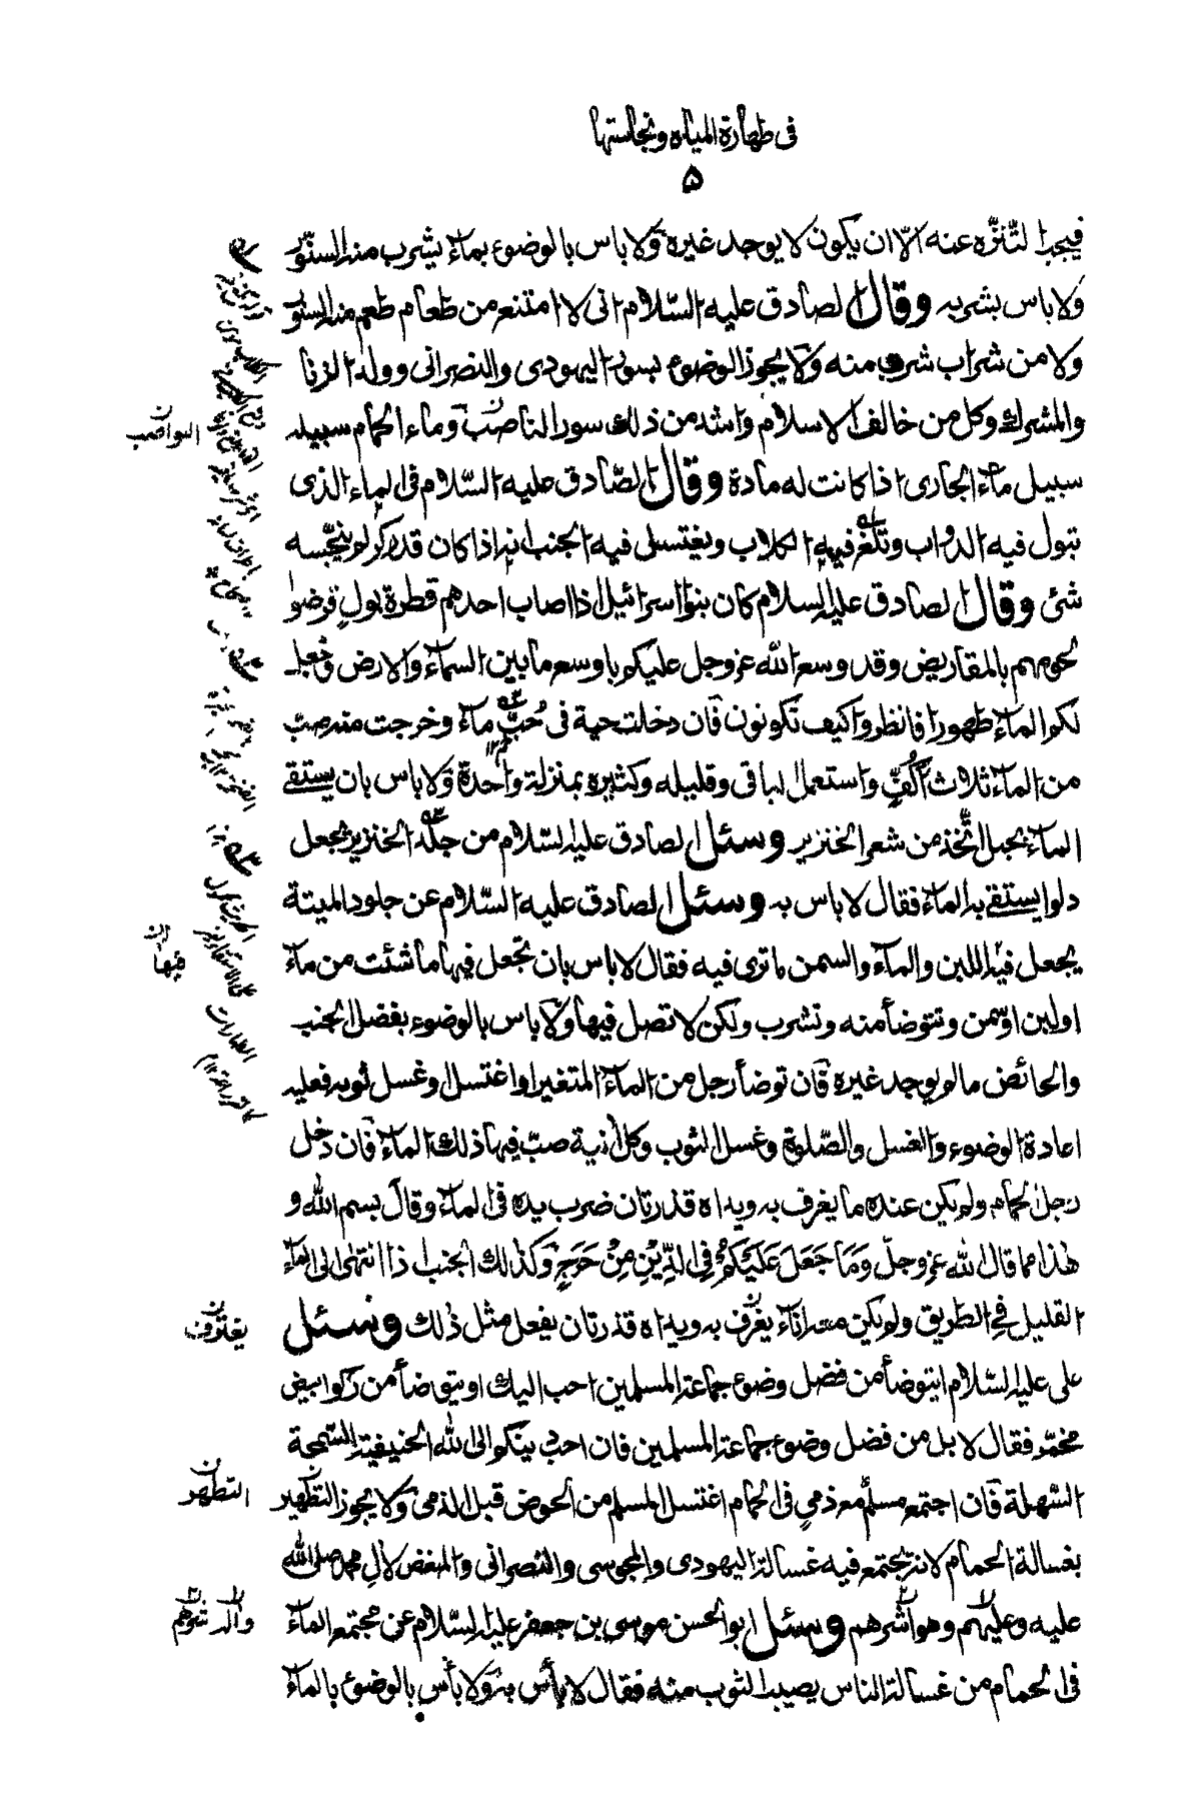 فى طهارة المياه ونجاستها
۵
فيجب التّنزّه عنه الّا ان يكون لا يوجد غيره ولا باس بالوضوء بماء يشرب منه السنّور
ولا باس بشربه وقال الصادق عليه السّلام انى لا امتنع من طعام طعم منه السنور
ولا من شراب شرب منه ولا يجوز الوضوء بسؤر اليهودى والنصرانى وولد الزنا
والمشرك وكل من خالف الاسلام واشد من ذلك سور الناصب وماء الحمام سبيله
سبيل ماء الجارى اذا كانت له مادة وقال الصّادق عليه السّلام فى الماء الذى
تبول فيه الدواب وتلغ فيه الكلاب ويغتسل فيه الجنب انه اذا كان قدر كر لم ينجّسه
شئ وقال الصادق عليه السلام كان بنو اسرائيل اذا اصاب احدهم قطرة بول قرضوا
لحومهم بالمقاريض وقد وسع الله عز وجل عليكم باوسع ما بين السماء والارض وجعل
لكم الماء طهورا فانظروا كيف تكونون فان دخلت حية فى حُبّ ماء وخرجت منه صبّ
من الماء ثلاث اكُفّ واستعمل الباقى وقليله وكثيره بمنزلة واحدة ولا باس بان يستقى
الماء بحبل اتّخذ من شعر الخنزير وسئل الصادق عليه السّلام من جلد الخنزير يجعل
دلوا يستقى به الماء فقال لا باس به وسئل الصادق عليه السّلام عن جلود الميتة
يجعل فيه اللبن والماء والسمن ما ترى فيه فقال لا باس بان تجعل فيها ما شئت من ماء
او لبن او سمن وتتوضأ منه وتشرب ولكن لا تصل فيها ولا باس بالوضوء بفضل الجنب
والحائض ما لم يوجد غيره فان توضأ رجل من الماء المتغير او اغتسل او غسل ثوبه فعليه
اعادة الوضوء والغسل والصّلوة وغسل الثوب وكل انية صبّ فيها ذلك الماء فان دخل
رجل الحمام ولم يكن عنده ما يغرف به ويداه قذرتان ضرب يده فى الماء وقال بسم الله و
هذا مما قال الله عز وجلّ وَمَا جَعَلَ عَلَيْكُمْ فِى الدِّيْنِ مِنْ حَرَجٍ وكذلك الجنب اذا انتهى الى الماء
القليل فى الطريق ولم يكن معه اناء يغرف به ويداه قذرتان يفعل مثل ذلك وسئل
على عليه السّلام ايتوضأ من فضل وضوء جماعة المسلمين احب اليك او يتوضأ من ركو ابيض
مخمّر فقال لا بل من فضل وضوء جماعة المسلمين فان احب دينكم الى الله الحنيفية السّمحة
السّهلة فان اجتمع مسلم مع ذمى فى الحمام اغتسل المسلم من الحوض قبل الذمى ولا يجوز التطهير
بغسالة الحمام لانه تجتمع فيه غسالة اليهودى والمجوسى والنصرانى والمبغض لآل محمد صلى الله
عليه وعليهم وهو اشرهم وسئل ابو الحسن موسى بن جعفر عليه السّلام عن مجتمع الماء
فى الحمام من غسالة الناس يصيب الثوب منه فقال لا بأس به ولا بأس بالوضوء بالماء
النواصب
فيها
يغترف
التطهر